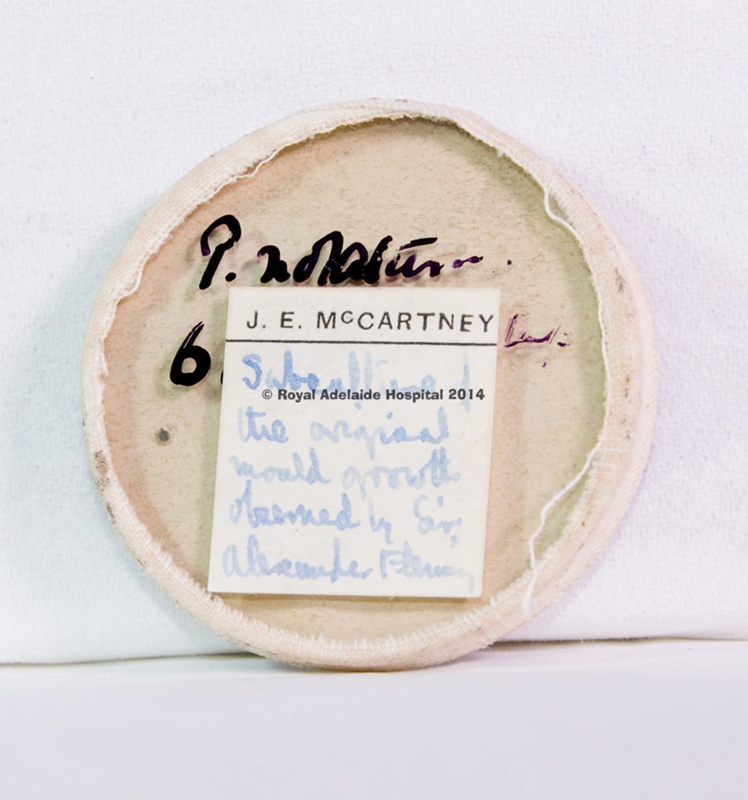 P. notatum.
6
J. E. McCARTNEY
Subculture of
© Royal Adelaide Hospital 2014
the original
mould growth
observed by Sir
Alexander Fleming